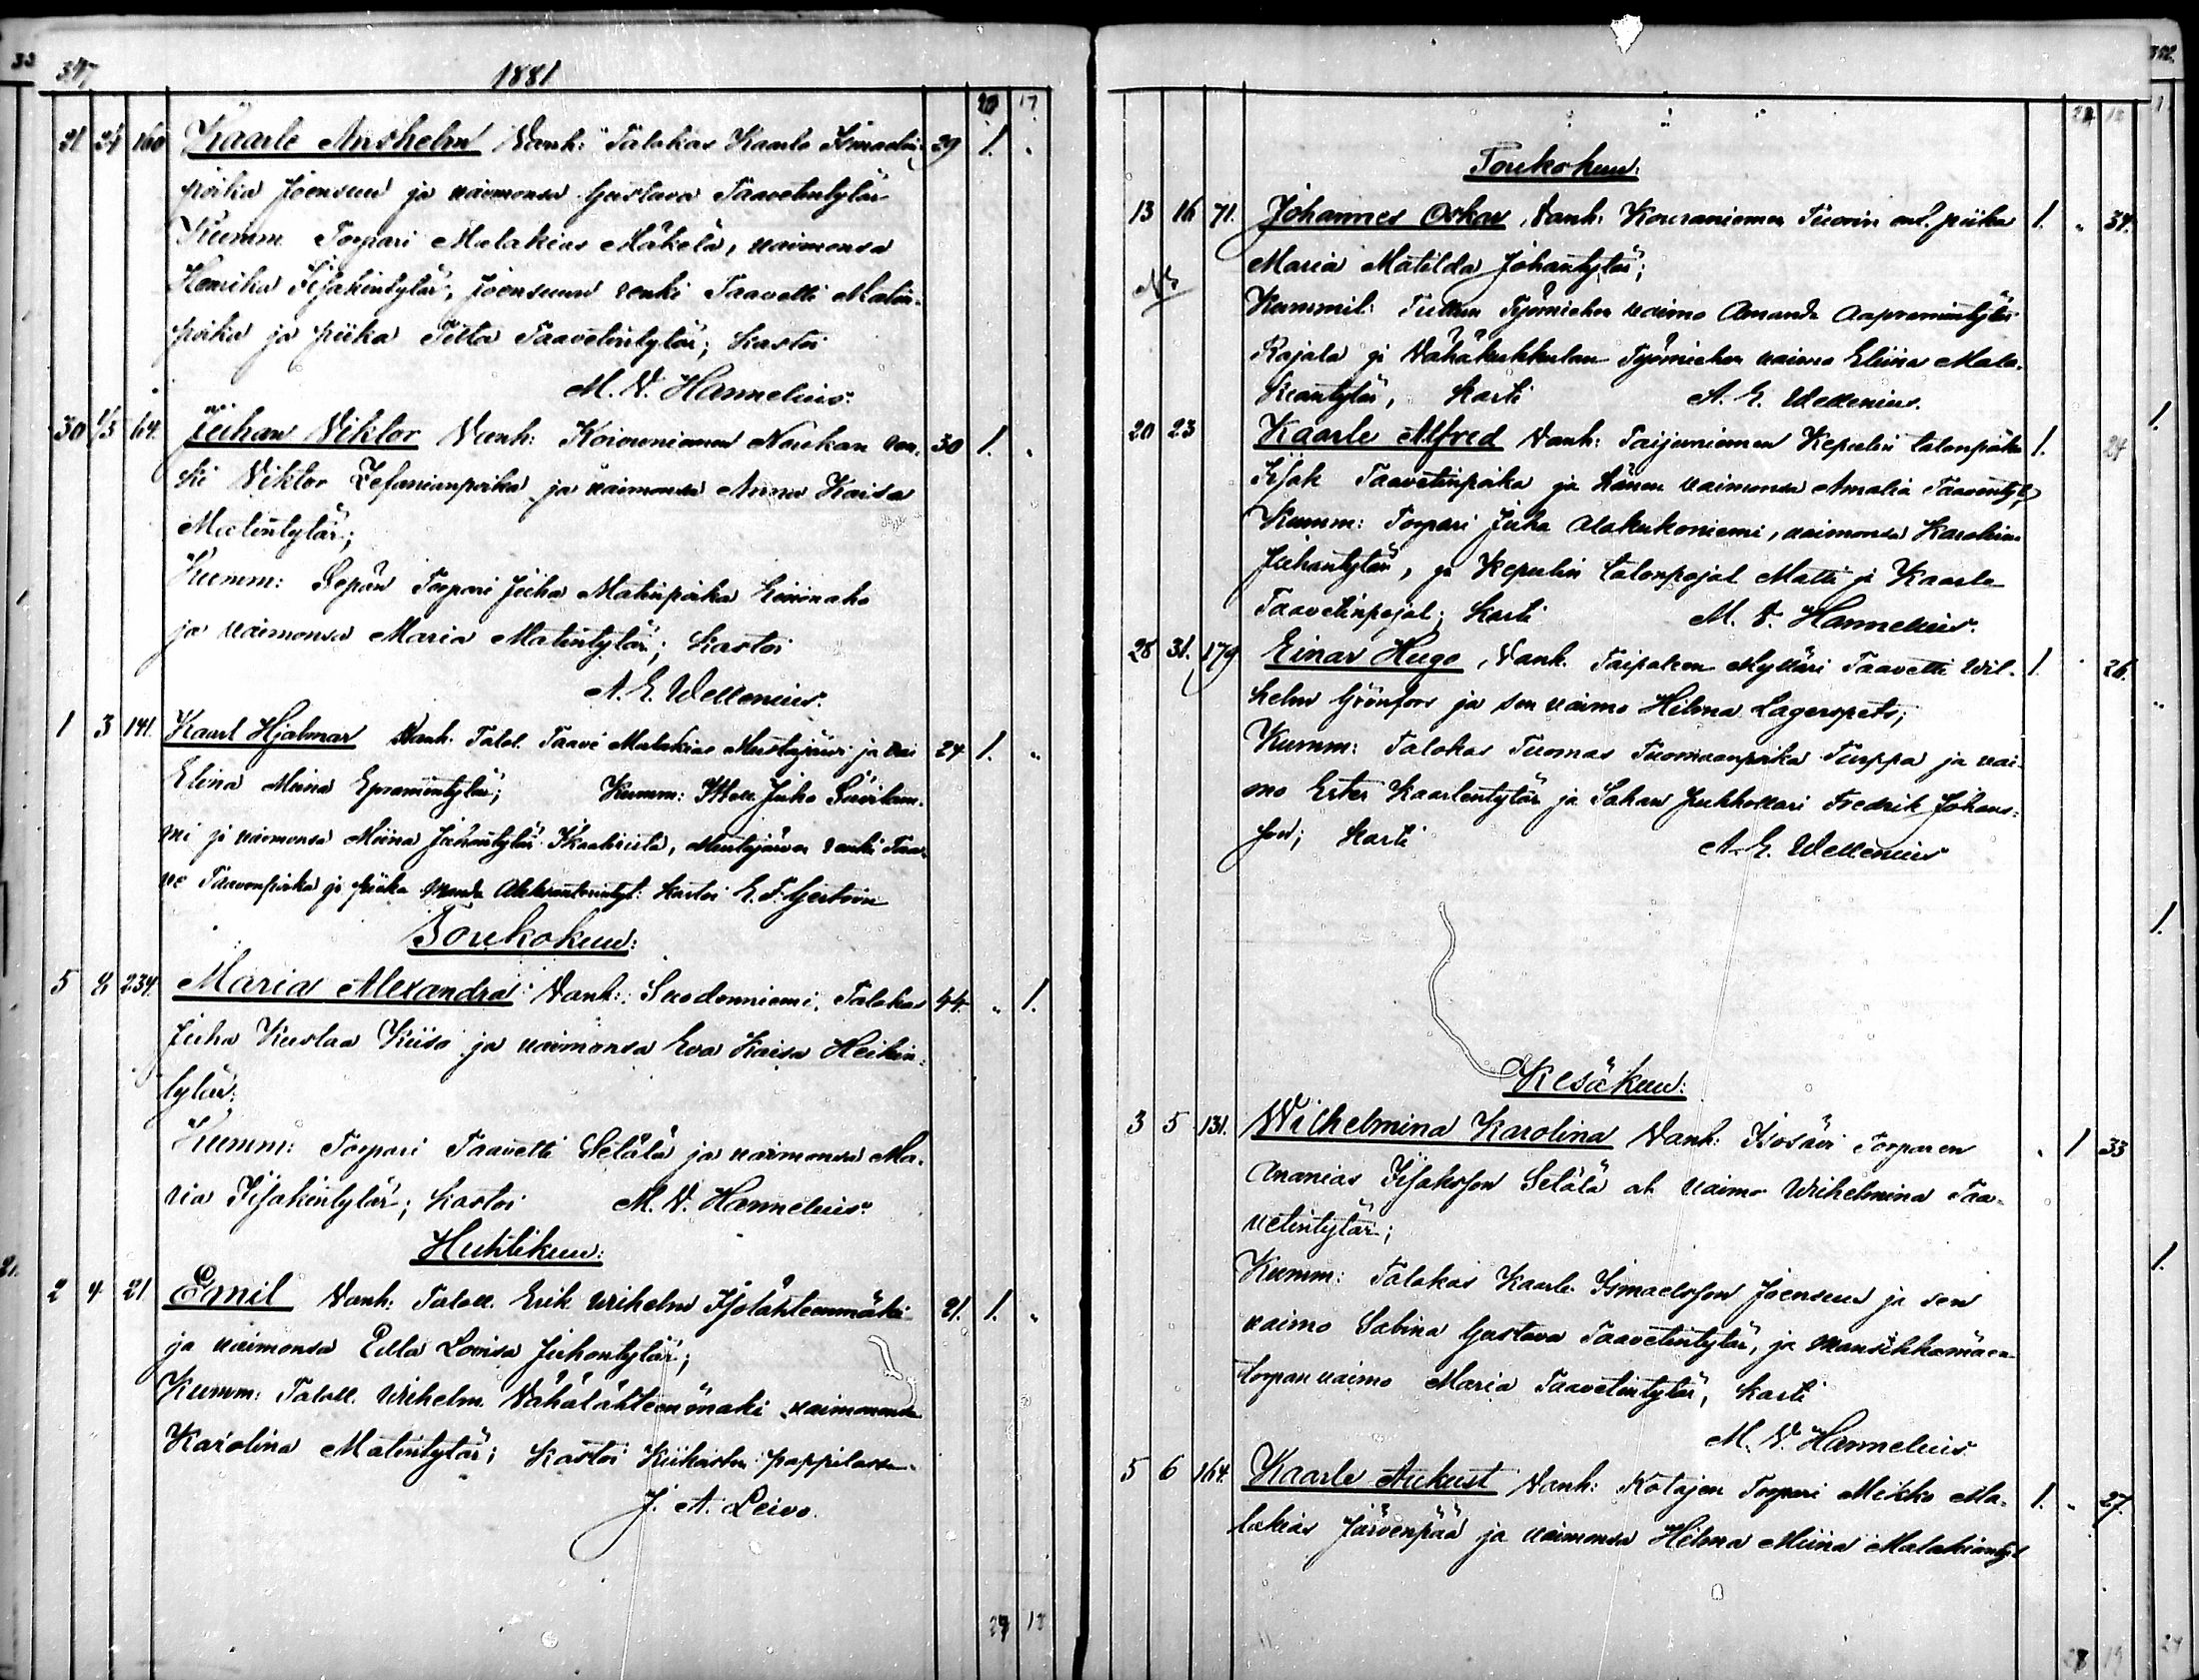 347
1881
20 17
21 24 160 Kaarle Anshelm Vanh: Talokas Kaarle Ismaelin 29 1. "
poika Joensuu ja vaimonsa Gustava Taavetintytär
Kumm. Torpari Malakias Mäkelä, vaimonsa
Henrika Iisakintytär, Joensuun renki Taavetti Matin-
poika ja piika Tilta Taavetintytär; Kastoi
M. V. Hannelius.
30 1/5 64. Juhan Viktor Vanh: Koivuniemen Noukan ren- 30 1. "
ki Viktor Zefanianpoika ja vaimonsa Anna Kaisa
Matintytär;
Kumm: Sepän Torpari Juha Matinpoika
ja vaimonsa Maria Matintytär; Kastoi
A. E. Wellenius.
1 3 141. Kaarl Hjalmar Vanh. Talol. Taave Malakias Mustajärvi ja vai 24 1. "
Elina Miina Epramintytär; Kumm: Juho
mi ja vaimonsa Miina Juhontytär, Mustajärven renki Taa-
ve Taavonpoika ja piika Manda Aleksanterintyt: Kastoi E. F.
Toukokuu:
5 8 234. Maria Alexandra Vanh: Suodenniemi, Talokas 44. " 1.
Juha Kustaa Kiiso ja vaimonsa Eva Kaisa Heikin-
tytär:
Kumm: Torpari Taavetti Setälä ja vaimonsa Ma-
ria Iisakintytär; Kastoi M. V. Hannelius.
Huhtikuu:
2 4 21. Emil Vanh. Taloll. Erik Wilhelm Isolähteenmäki 21. 1. "
ja vaimonsa Edla Lovisa Juhontytär;
Kumm: Taloll. Wilhelm Vähälähteenmäki vaimonsa
Karolina Matintytär; Kastoi Kiikasten pappilassa
J. A. Leivo.
27 18
Toukokuu:
13 16 71. Johannes Oskar, Vanh. Kouraniemen Tuorin piika 1. " 34.
Maria Matilda Johantytär;
Kummit: Työmiehen vaimo Amanda Aapramintytär
Rajala ja Vähäkukkulan Työmiehen vaimo Eliina Mala-
kiantytär, Kasti A. E. Wellenius.
20 23 Kaarle Alfred Vanh: Taijuniemen Kepulin talonpoika 1. 24
Isak Taavetinpoika ja hänen vaimonsa Amalia Taavetintyt;
Kumm: Torpari Juha Alakukoniemi, vaimonsa Karoliina
Juhantytär, ja Kepulin talonpojat Matti ja Kaarle
Taavetinpojat; Kasti M. V. Hannelius.
28 31. 179 Einar Hugo, Vanh. Taipaleen Mylläri Taavetti Wil- 1. " 26.
helm Grönfors ja sen vaimo Hilma Lagerspets;
Kumm: Talokas Tuomas Tuomaanpoika Turppa ja vai-
mo Ester Kaarlentytär ja Sahan Fredrik Johans-
son; Kasti A. E. Wellenius
Kesäkuu:
3 5 131. Wilhelmina Karolina Vanh: Isosävi Torparen " 1 33
Ananias Iisaksson Setälä ah vaimo Wilhelmina Taa-
vetintytär;
Kumm: Talokas Kaarle Ismaelsson Joensuu ja sen
vaimo Sabina Gustava Taavetintytär, ja Mansikkamäen
torpan vaimo Maria Taavetintytär, Kasti
M. V. Hannelius
5 6 164. Kaarle Aukust Vanh: Kotajen Torpari Mikko Ma- 1. " 27.
lakias Järvenpää ja vaimonsa Hilma Miina Malakiantyt
28 19